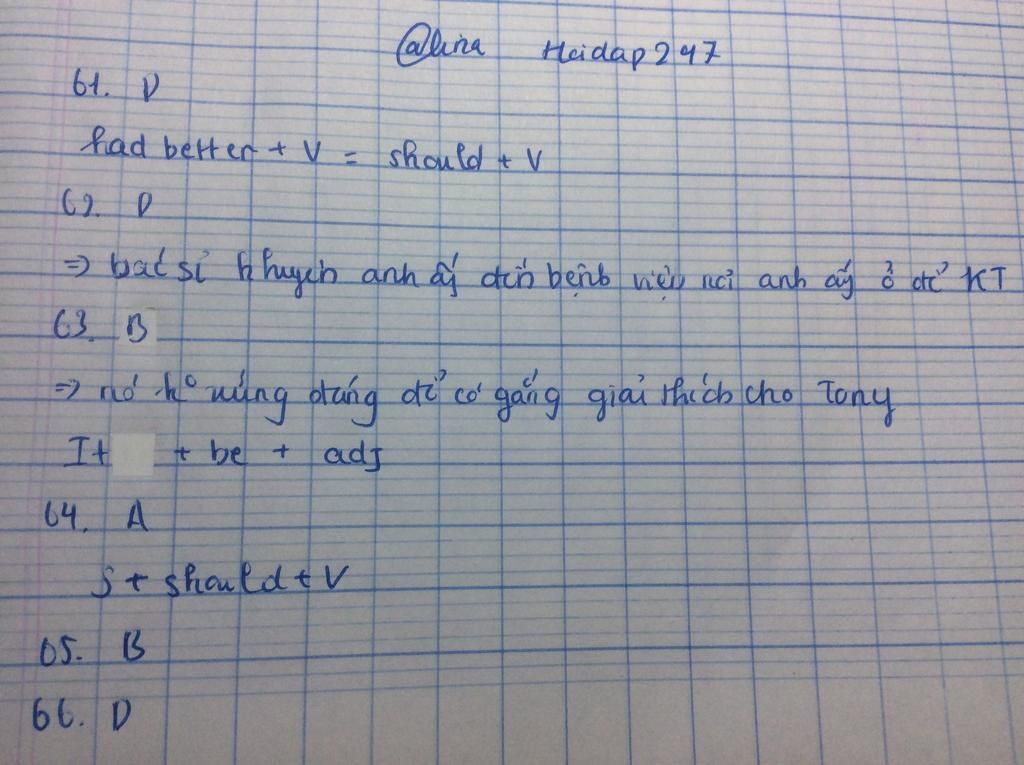 @lina Hoidap247
61. D
had better + V = should + V
62. D
=> bác sĩ khuyên anh ấy đến bệnh viện nơi anh ấy ở để KT
63. B
=> nó k° xứng đáng để cố gắng giải thích cho Tony
It + be + adj
64. A
S + should + V
65. B
66. D